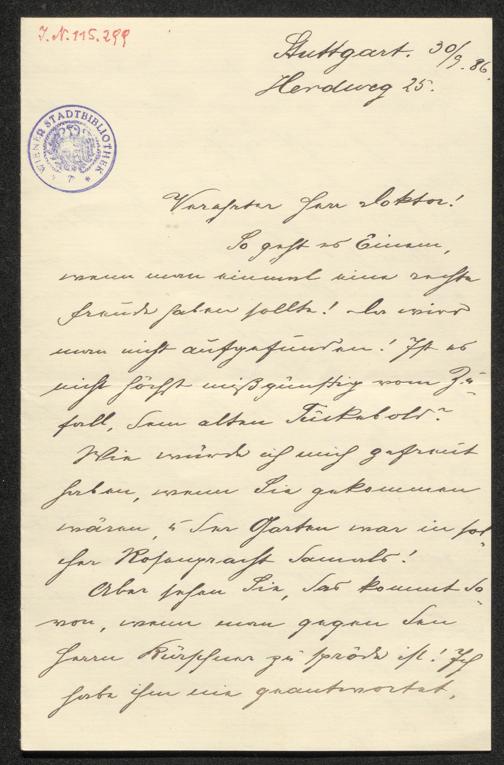 J.N. 115.299
Stuttgart. 30/9. 86.
Herdweg 25.
WIENER STADTBIBLIOTHEK
Verehrter Herr Doktor!
So geht es Einem,
wenn man einmal eine rechte
Freude haben sollte! Da wird
man nicht aufgefunden! Ist es
nicht höchst mißgünstig vom Zu-
fall, dem alten Tückebold?
Wie würde ich mich gefreut
haben, wenn Sie gekommen
wären, u der Garten war in sol-
cher Rosenpracht damals!
Aber sehen Sie, das kommt da-
von, wenn man gegen den
Herrn Kürschner zu spröde ist! Ich
habe ihm nie geantwortet,